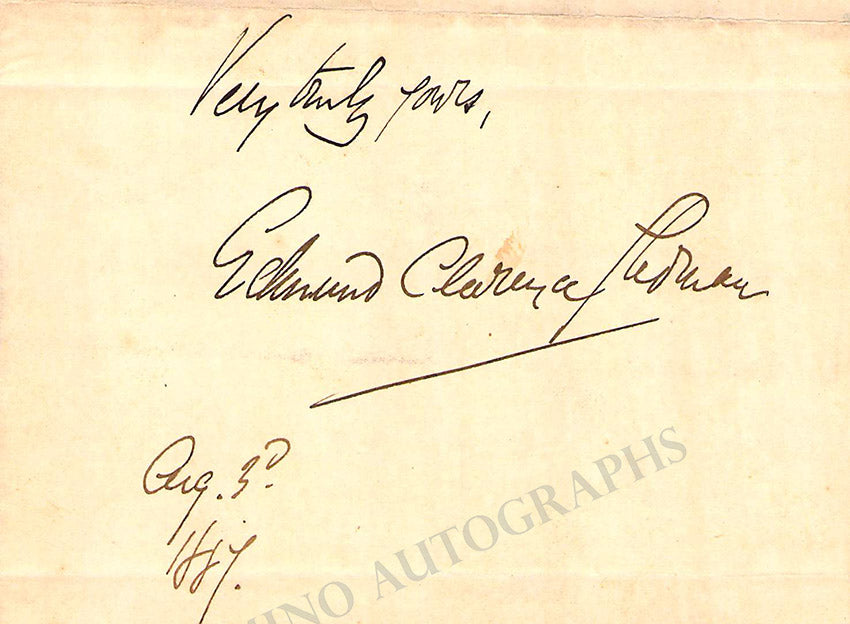 Very truly yours,
Edmund Clarence Stedman
Aug. 3d.
1887.
INO AUTOGRAPHS